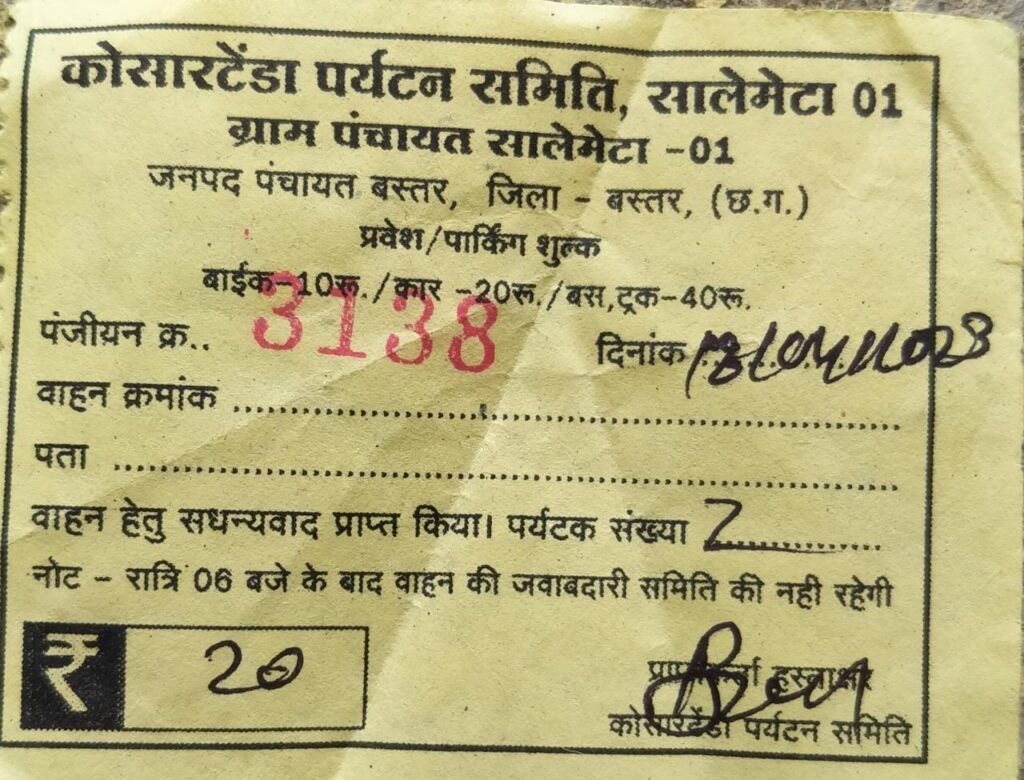 कोसारटेंडा पर्यटन समिति, सालेमेटा 01
ग्राम पंचायत सालेमेटा -01
जनपद पंचायत बस्तर, जिला - बस्तर, (छ.ग.)
प्रवेश/पार्किंग शुल्क
बाईक-10रू./कार -20रू./बस,ट्रक-40रू.
पंजीयन क्र.. 3138 दिनांक
वाहन क्रमांक
पता
वाहन हेतु सधन्यवाद प्राप्त किया। पर्यटक संख्या 2
नोट - रात्रि 06 बजे के बाद वाहन की जवाबदारी समिति की नही रहेगी
₹ 20
हस्ताक्षर
कोसारटेंडा पर्यटन समिति